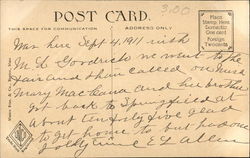 3.00
POST CARD.
THIS SPACE FOR COMMUNICATION
ADDRESS ONLY
Place
Stamp Here
Domestic
One cent
Foreign
Two cents
Was here Sept 4, 1911 with
M E Goodrich we went to the
Fair and then called on Miss
Mary Macomba and her brother
got back to Springfield at
about ten fifty five glad
to get home to but had some
jolly time E L Allen